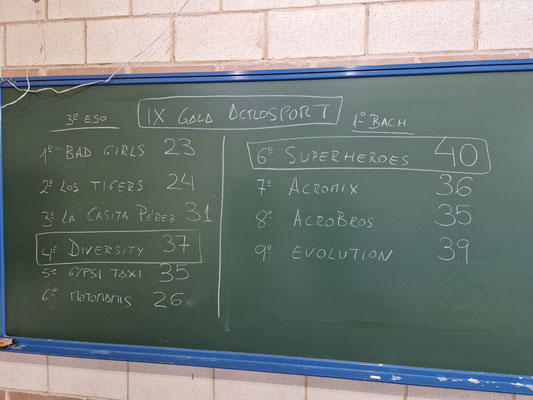 IX GALA ACROSPORT
3º ESO
1º BAD GIRLS 23
2º LOS TIGERS 24
3º LA CASITA PÉREZ 31
4º DIVERSITY 37
5º GYPSI TAXI 35
6º MOTOMAMIS 26
1º BACH
6º SUPERHEROES 40
7º ACROMIX 36
8º ACROBROS 35
9º EVOLUTION 39